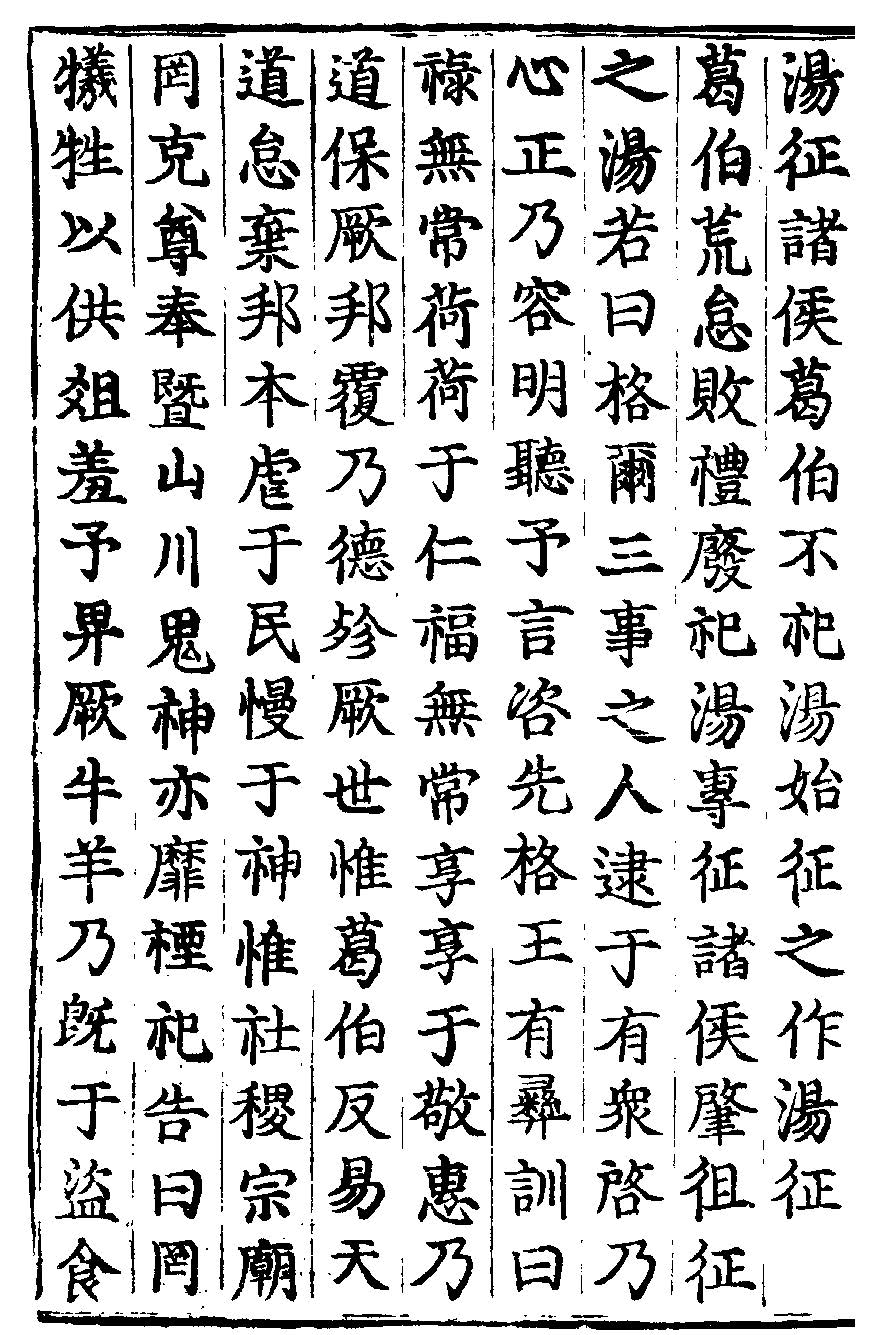 湯征諸侯葛伯不祀湯始征之作湯征
葛伯荒怠敗禮廢祀湯專征諸侯肇徂征
之湯若曰格爾三事之人逮于有衆啓乃
心正乃容明聽予言咨先格王有彝訓曰
祿無常荷荷于仁福無常享享于敬惠乃
道保厥邦覆乃德殄厥世惟葛伯反易天
道怠棄邦本虐于民慢于神惟社稷宗廟
罔克尊奉暨山川鬼神亦靡禋祀告曰罔
犧牲以供俎羞予畀厥牛羊乃既于盜食